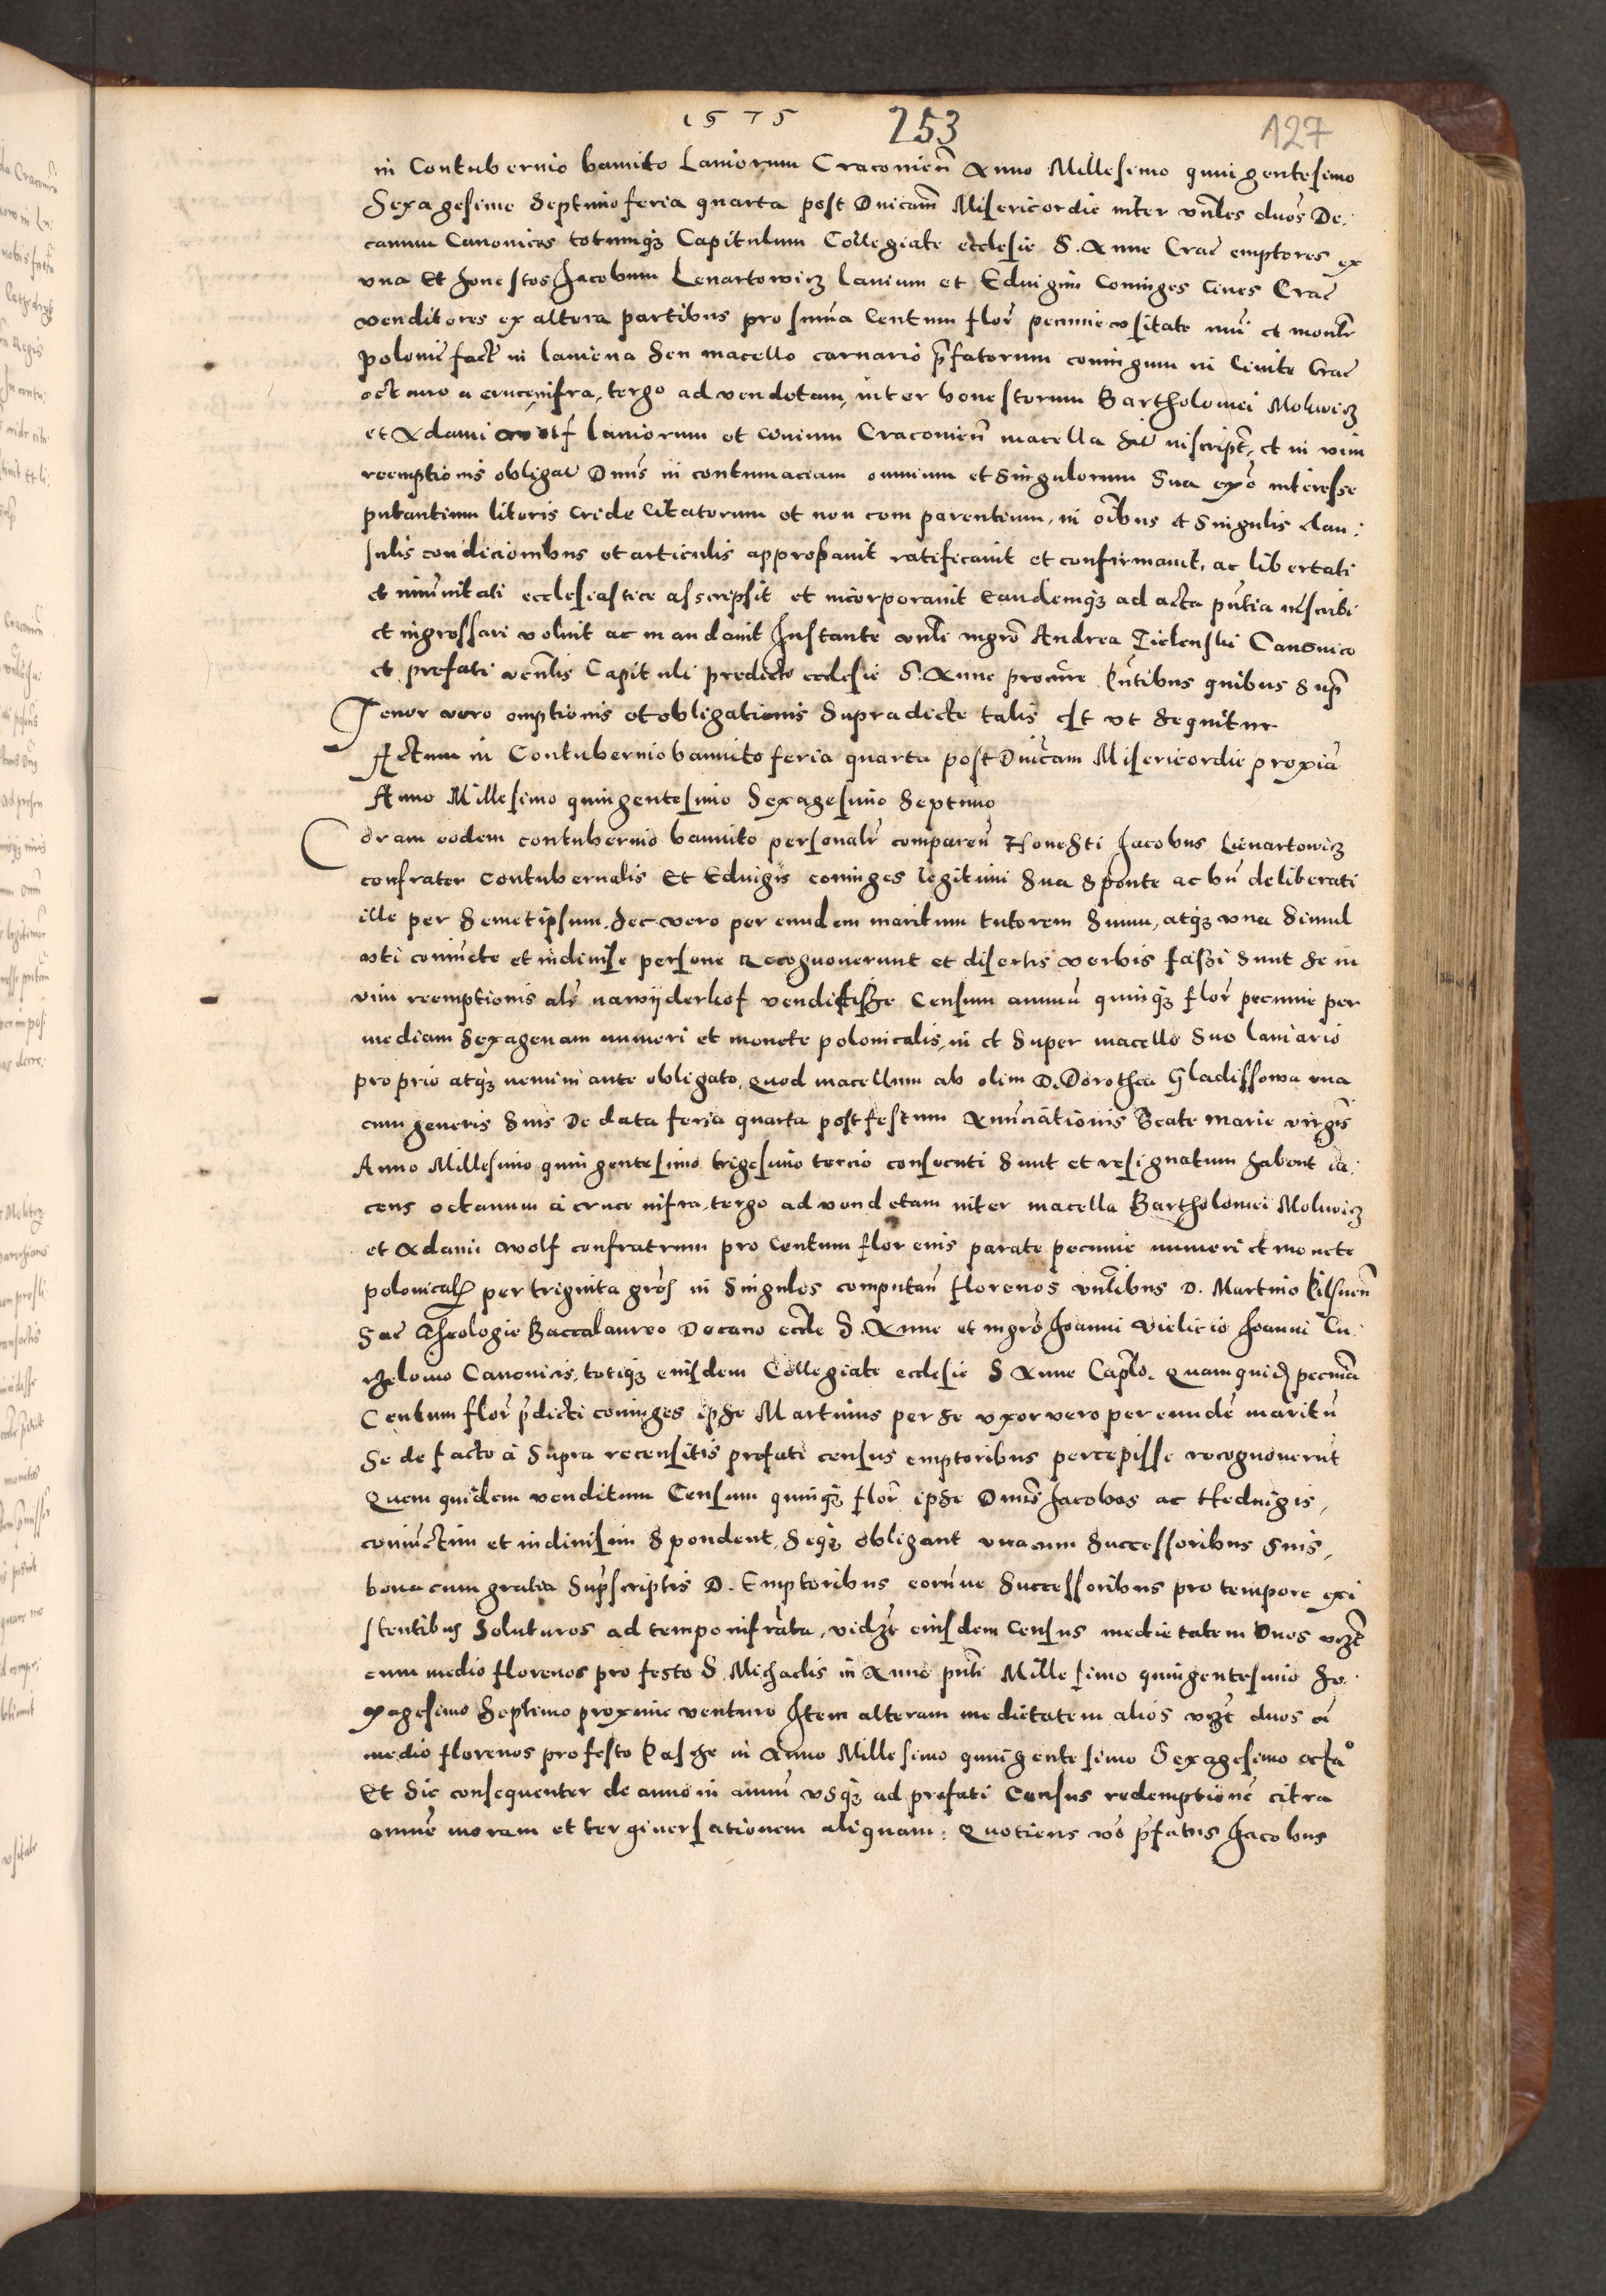 1575 253 127
in Contubernio bannito Laniorum Craconien̄ Anno Millesimo quingentesimo
Sexagesimo Septimo feria quarta post Dnicam̄ Misericordie inter vn̄les duos De:
canum Canonicos totumq3 Capitulum Collegiate ecclesie S. Anne Crac emptores ex
vna Et Honestos Jacobum Lenartowicz lanium et Eduigim Coniuges Ciues Crac
venditores ex altera partibus pro sum̄a Centum flor̄ pecunie vsitate nu͠i et monete
polonic̄ fact̄ in laniena seu macello carnario p̄fatorum coniugum in Ciuite Crac
octauo a cruce, infra, tergo ad vendetam, inter honestorum Bartholomei Moluicz
et Adami wolf laniorum et ciuium Craconien̄ macella sit̄ inscript̄, et in vim
reemptionis obligat̄ Dn̄s in contumaciam omnium et singulorum sua ex̄o interesse
putantium literis cride Citatorum et non comparentium, in oībus et singulis clau:
sulis condicionibus et articulis approbauit ratificauit et confirmauit, ac libertati
et im̄unitati ecclesiastice asscripsit et incorporauit Eandemq3 ad acta pn̄tia inscribi
et ingrossari voluit ac mandauit Instante vnl̄i mgr̄o Andrea Zielenski Canonico
et prefati ven̄lis Capituli predicte ecclesie S. Anne procur̄e pn̄tibus quibus supr̄
Tenor vero emptionis et obligationis supradicte talis est vt sequitur
Actum in Contubernio bannito feria quarta post Dnicam Misericordie proxīa
Anno Millesimo quingentesimo Sexagesimo Septimo
Coram eodem contubernio bannito personalr̄ comparen̄ Honesti Jacobus Lienartowicz
confrater Contubernalis Et Eduigis coniuges legitimi sua sponte ac bn̄ deliberati
ille per semetipsum, hec vero per eundem maritum tutorem suum, atq3 vna simul
vti coniuncte et indiuise persone Recognouerunt et disertis verbis fassi sunt se in
vim reemptionis als̄ nawyderkof vendidisse Censum annuū quinq3 flor̄ pecunie per
mediam sexagenam numeri et monete polonicalis, in et super macello suo laniario
proprio atq3 nemini ante obligato, quod macellum ab olim D. Dorothea Gladissowa vna
cum generis suis De data feria quarta post festum Anun̄ciationis Beate Marie virgis̄
Anno Millesimo quingentesimo trigesimo tercio consecuti sunt et resignatum habent ia:
cens octauum à cruce infra, tergo ad vendetam inter macella Bartholomei Moluicz
et Adami wolf confratrum pro Centum florenis parate pecunie numeri et monete
polonicalis per triginta gros̄ in singulos computan̄ florenos vnl̄ibus D. Martino Pilsnen̄
Sac Theologie Baccalaureo Decano eccle S. Anne et mgro Joanni Vielicio Joanni Tu:
rzelowo Canonicis, totiq3 eiusdem Collegiate ecclesie S Anne Capl̄o. Quamquid pecunia
Centum flor̄ p̄dicti coniuges ipse Martinus per se vxor vero per eundē maritū
se de facto à supra recensitis prefati census emptoribus percepisse recognouerūt
Quem quidem venditum Censum quinq3 flor̄ ipse Dn̄s Jacobus ac Heduigis,
coniunctim et indiuisim spondent, seq3 obligant vnacum Successoribus suis,
bona cum gratia sup̄scriptis D. Emptoribus eorumue Successoribus pro tempore exi
stentibus Soluturos ad tempo infrāta, vidz̄t eiusdem Census medietatem Duos vz̄t
cum medio florenos pro festo S. Michaelis in Anno pn̄ti Millesimo quingentesimo se:
xagesimo Septimo proxime venturo Item alteram medietatem alios vz̄t duos cū
medio florenos pro festo Pasche in Anno Millesimo quingentesimo Sexagesimo octaº
Et sic consequenter de anno in annū vsq3 ad prefati Census redemptionē citra
omnē moram et tergiuersationem aliquam: Quotiens vō p̄fatus Jacobus